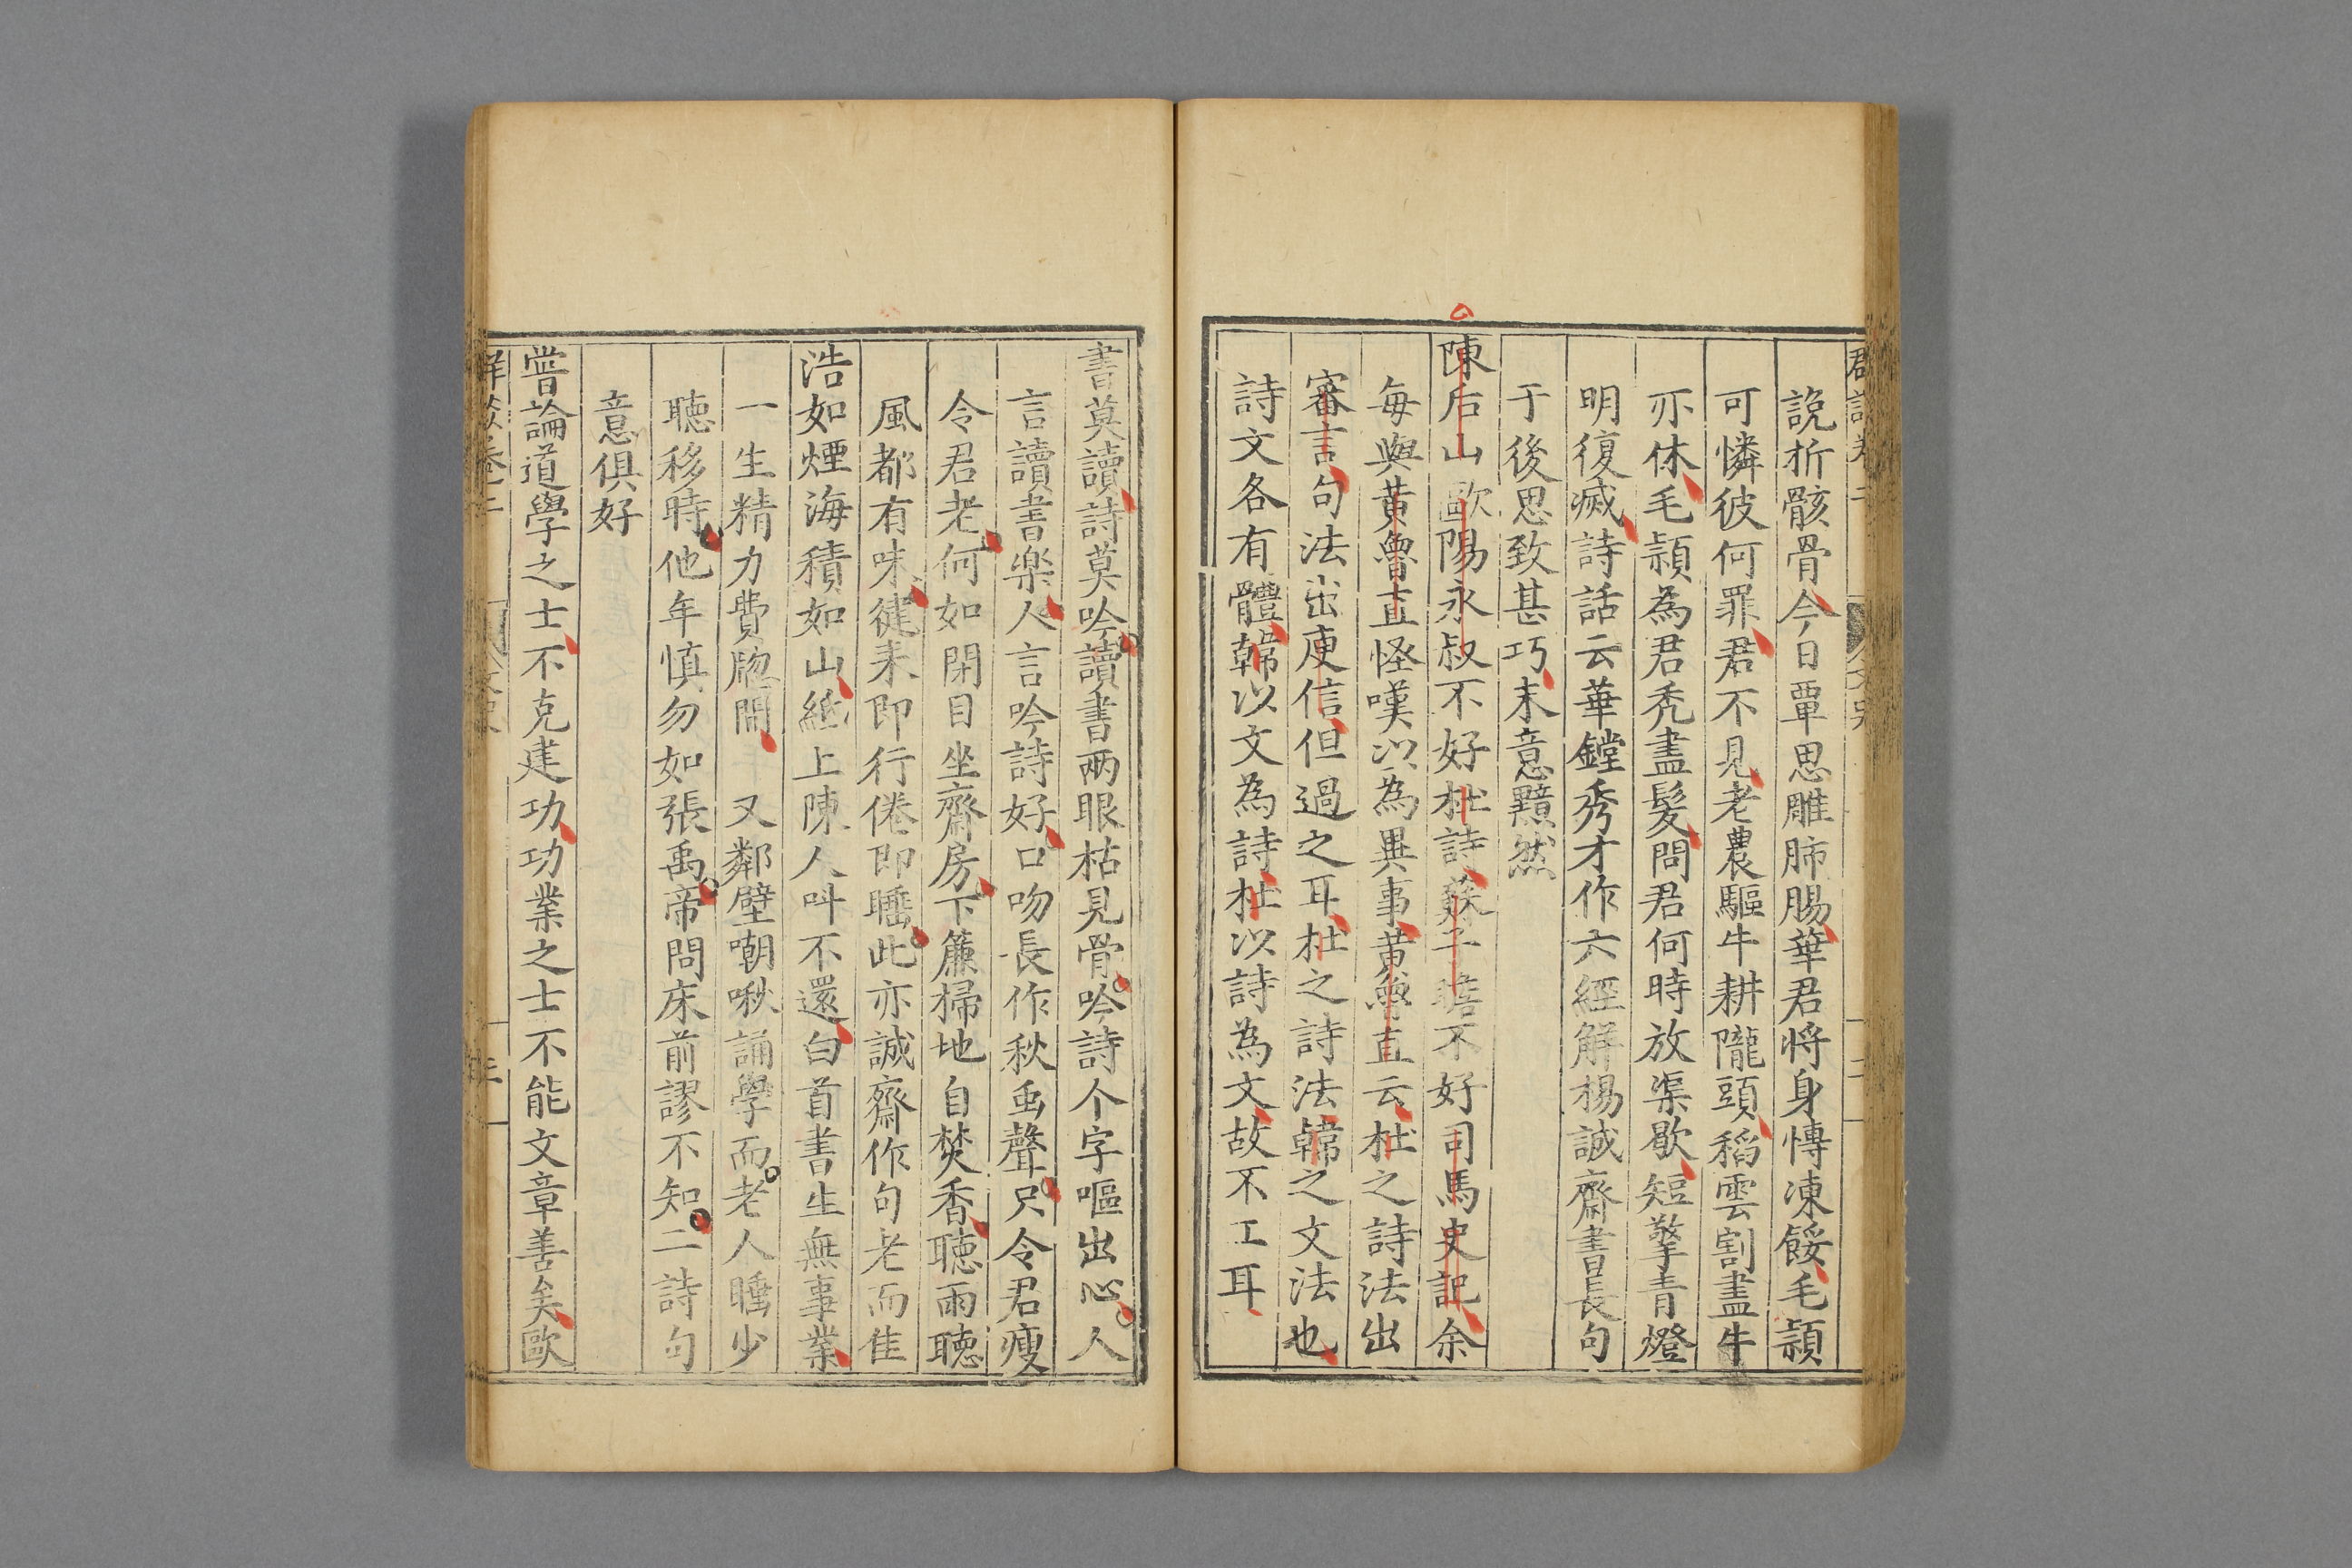 說析骸骨今日覃思雕肺腸華君將身慱凍餒毛頴
可憐彼何罪君不見老農驅牛耕隴頭稻雲割盡牛
亦休毛頴為君秃盡髮問君何時放渠歇短檠青燈
明復滅詩話云華鏜秀才作六經解楊誠齋書長句
于後思致甚巧末意黯然
陳后山歐陽永叔不好杜詩蘇子瞻不好司馬史記余
每與黄魯直怪嘆以為異事黄魯直云杜之詩法出
審言句法出庾信但過之耳杜之詩法韓之文法也
詩文各有體韓以文為詩杜以詩為文故不工耳
書莫讀詩莫吟讀書兩眼枯見骨吟詩个字嘔出心人
言讀書楽人言吟詩好口吻長作秋虫聲只令君瘦
令君老何如閉目坐齋房下簾掃地自焚香聽雨聽
風都有味徤来即行倦即睡此亦誠齋作句老而佳
浩如煙海積如山紙上陳人呌不還白首書生無事業
一生精力費牕間 又鄰壁嘲啾誦學而老人睡少
聽移時他年慎勿如張禹帝問床前謬不知二詩句
意俱好
甞論道學之士不克建功功業之士不能文章善矣歐